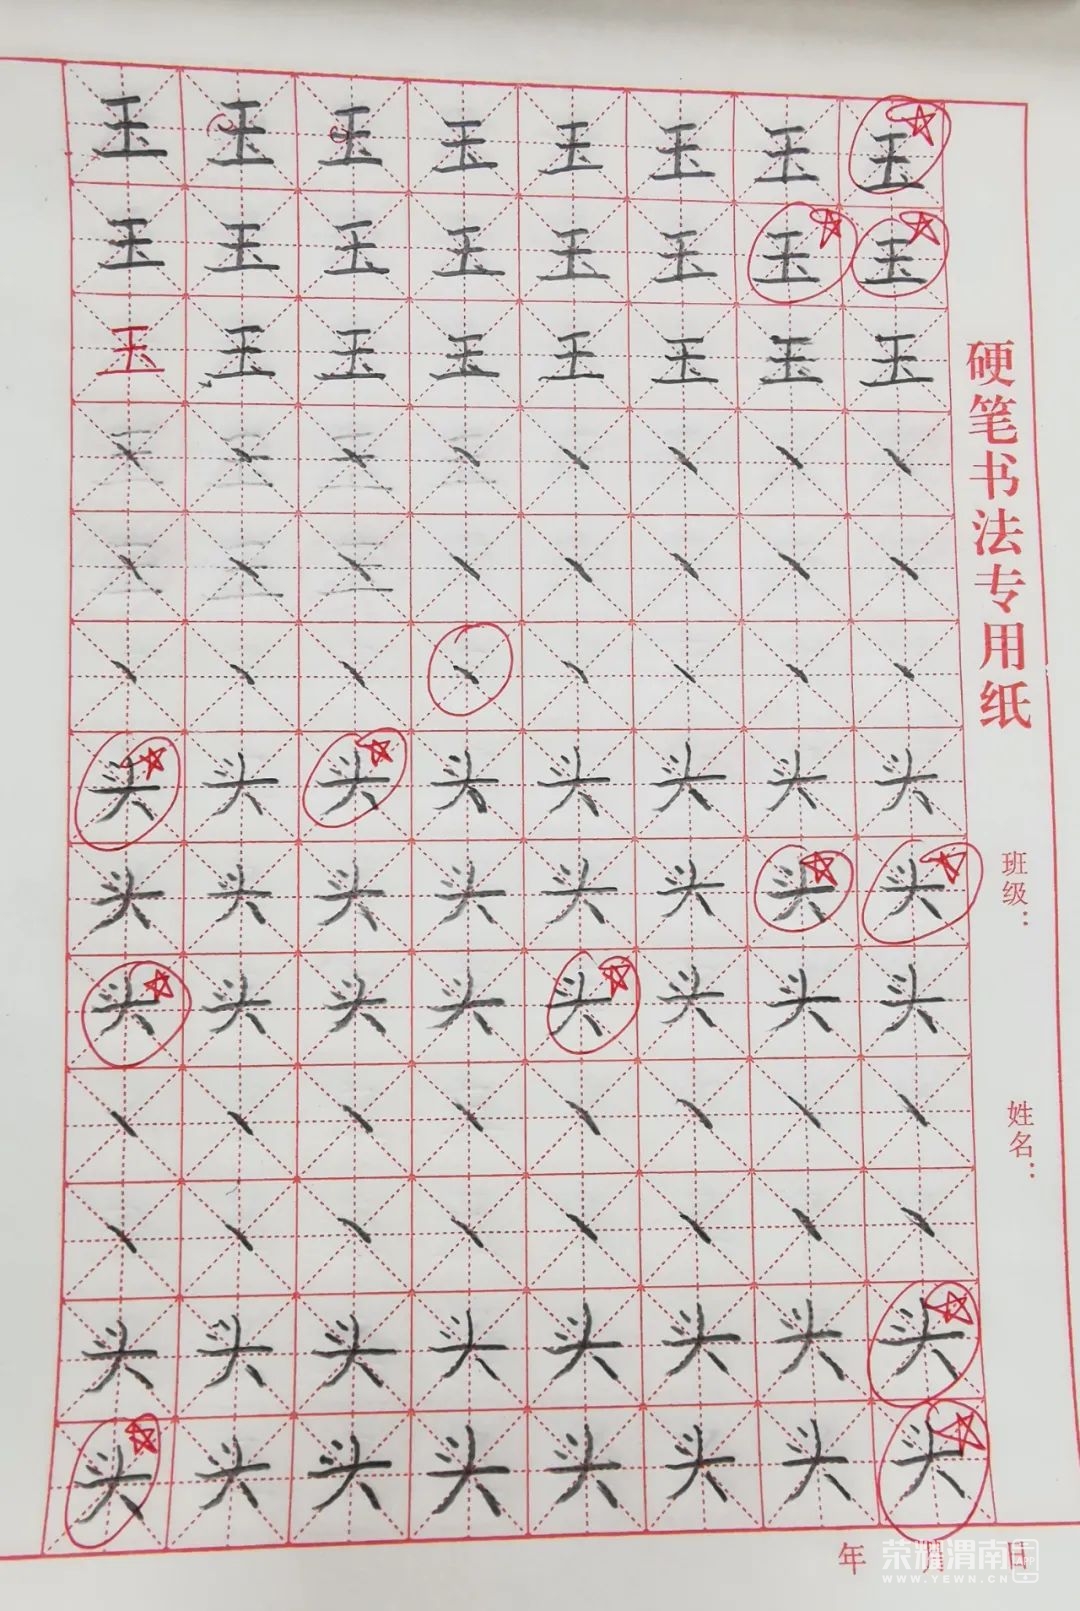 玉 玉 玉 玉 玉 玉 玉 玉
玉 玉 玉 玉 玉 玉 玉 玉
玉 玉 玉 玉 玉 玉 玉 玉
丶 丶 丶 丶 丶 丶 丶 丶
丶 丶 丶 丶 丶 丶 丶 丶
丶 丶 丶 丶 丶 丶 丶 丶
头 头 头 头 头 头 头 头
头 头 头 头 头 头 头 头
头 头 头 头 头 头 头 头
丶 丶 丶 丶 丶 丶 丶 丶
丶 丶 丶 丶 丶 丶 丶 丶
头 头 头 头 头 头 头 头
头 头 头 头 头 头 头 头
硬笔书法专用纸
班级：
姓名：
年 月 日
荣耀渭南 APP
WWW.YEWN.CN